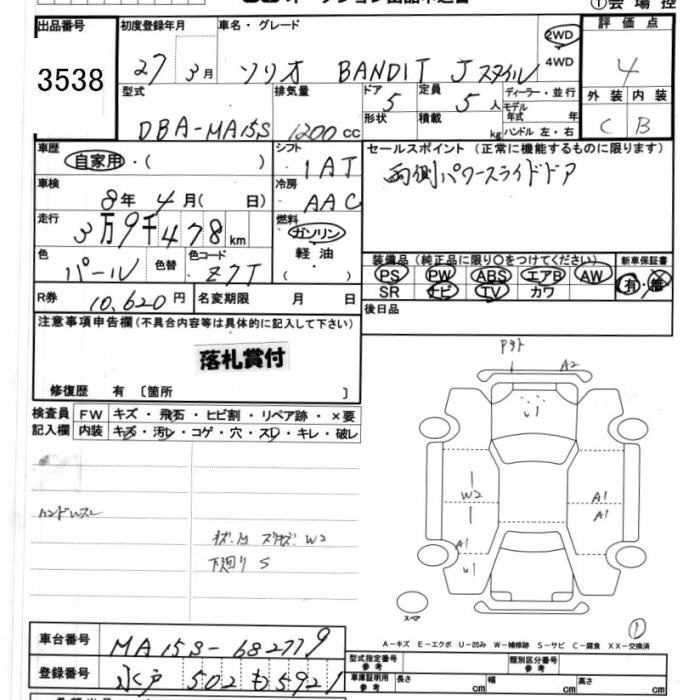 ①会場控
出品番号 3538
初度登録年月 27 3月
車名・グレード ソリオ BANDIT Jスタイル
2WD
4WD
評価点 4
外装 内装
C B
型式 DBA-MA15S
排気量 1200 cc
ドア 5
形状
定員 5 人
積載 kg
ディーラー・並行
モデル年式 年式
ハンドル 左・右
車歴 自家用・( )
シフト 1AT
セールスポイント (正常に機能するものに限ります)
両側パワースライドドア
車検 8年 4月( 日)
冷房 AAC
走行 3万9千478km
燃料 ガソリン
軽油
( )
色 パール 色替
色コード Z7T
装備品 (純正品に限り○をつけてください)
PS PW ABS エアB AW
SR ナビ TV カワ
新車保証書
有・無
R券 10,620円
名変期限 月 日
後日品
注意事項申告欄 (不具合内容等は具体的に記入して下さい)
落札賞付
修復歴 有 〔箇所 〕
検査員記入欄
FW キズ・飛石・ヒビ割・リペア跡・×要
内装 キズ・汚レ・コゲ・穴・スレ・キレ・破レ
ハンドルスレ
キズ・凹 スリキズ W2
下廻り S
A2
W2
A1
A1
A1
U1
スペア
①
A-キズ E-エクボ U-凹み W-補修跡 S-サビ C-腐食 XX-交換済
車台番号 MA15S-682779
登録番号 水戸 502 も 5921
型式指定番号 参考
類別区分番号 参考
車庫証明用 参考
長さ cm
幅 cm
高さ cm